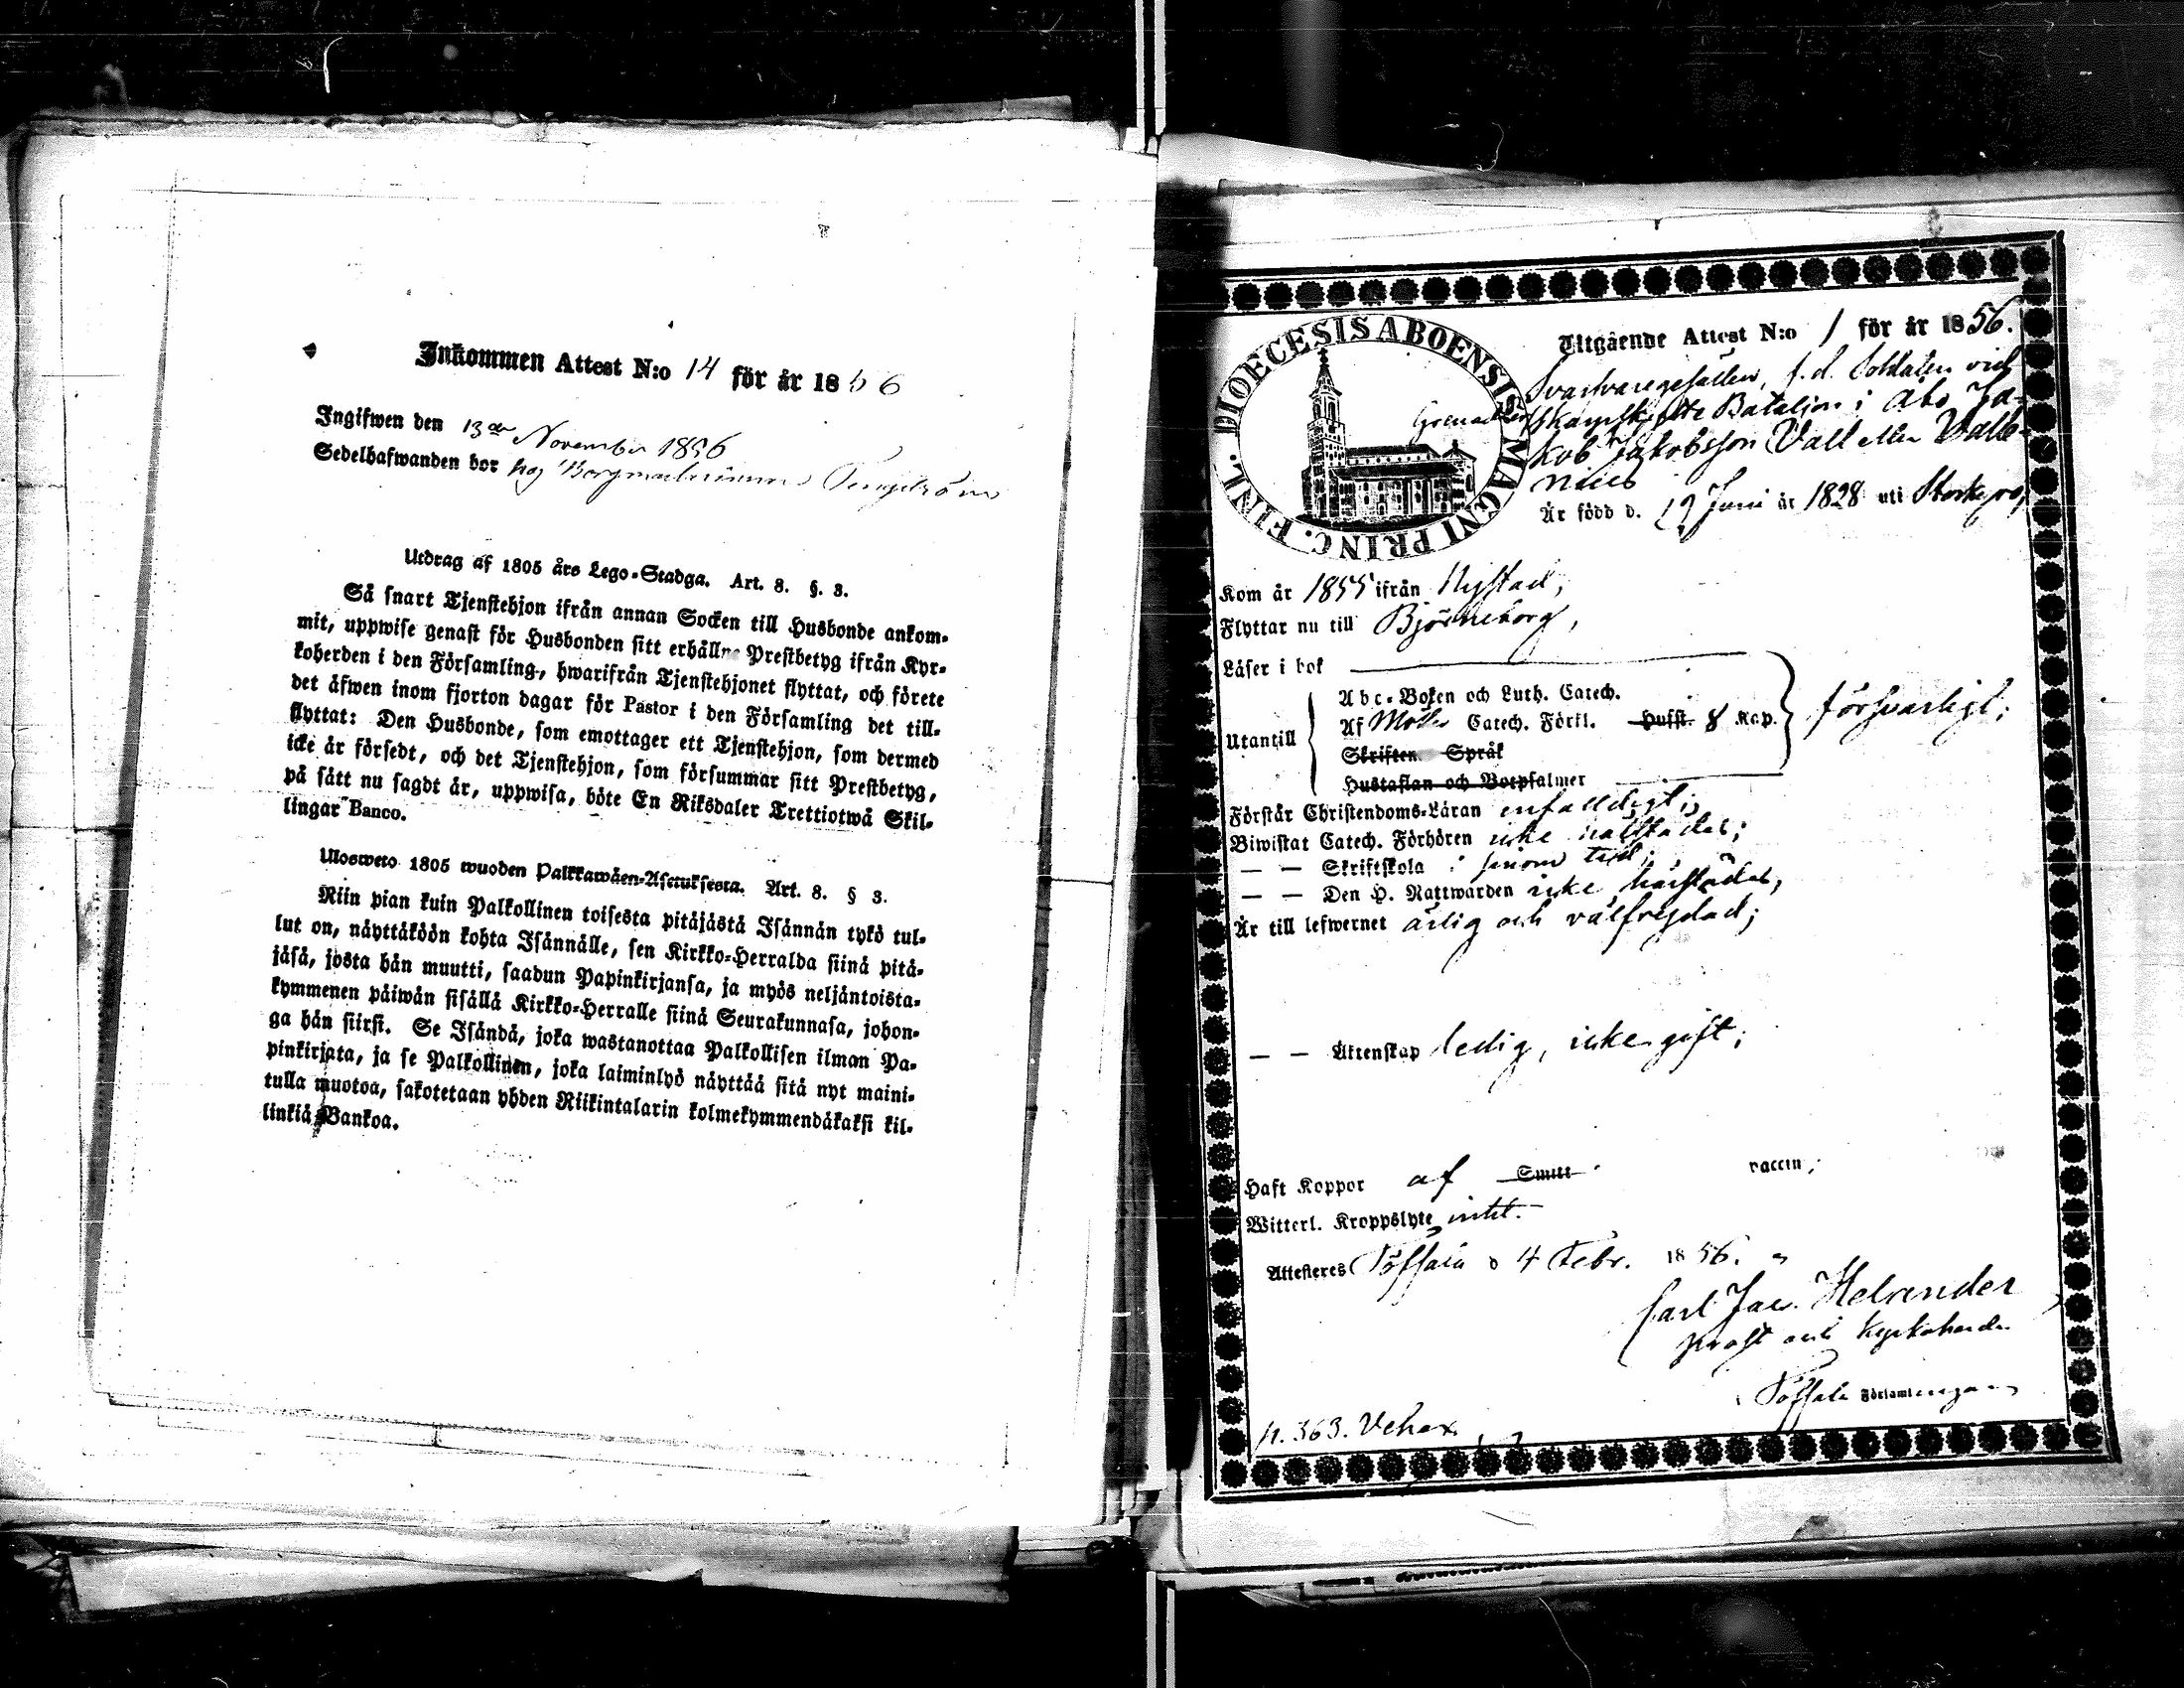 Inkommen Attest N:o 14 för år 1856
Ingifwen den 13de November 1856
Sedelhafwanden bor hos Borgmästarinnan Tengström
Utdrag af 1805 års Lego-Stadga. Art. 8. §. 3.
Så snart Tjenstehjon ifrån annan Socken till Husbonde ankom-
mit, uppwise genast för Husbonden sitt erhållne Prestbetyg ifrån Kyr-
koherden i den Församling, hwarifrån Tjenstehjonet flyttat, och förete
det äfwen inom fjorton dagar för Pastor i den Församling det till-
flyttat: Den Husbonde, som emottager ett Tjenstehjon, som dermed
icke är försedt, och det Tjenstehjon, som försummar sitt Prestbetyg,
på sätt nu sagdt är, uppwisa, böte En Riksdaler Trettiotwå Skil-
lingar Banco.
Ulosweto 1805 wuoden Palkkawäen-Asetuksesta. Art. 8. § 3.
Niin pian kuin Palkollinen toisesta pitäjästä Isännän tykö tul-
lut on, näyttäköön kohta Isännälle, sen Kirkko-Herralda siinä pitä-
jäsä, josta hän muutti, saadun Papinkirjansa, ja myös neljäntoista-
kymmenen päiwän sisällä Kirkko-Herralle siinä Seurakunnasa, johon-
ga hän siirsi. Se Isändä, joka wastanottaa Palkollisen ilman Pa-
pinkirjata, ja se Palkollinen, joka laiminlyö näyttää sitä nyt maini-
tulla muotoa, sakotetaan yhden Riikintalarin kolmekymmendäkaksi kil-
linkiä Bankoa.
DIOECESIS ABOENSIS MAGNI PRINC. FINL.
Utgående Attest N:o 1 för år 1856.
Svarfvaregesällen, f.d. Soldaten vid
Grenadier Skarpskytte Bataljon i Åbo Ja-
kob Jakobsson Vall eller Valle-
nius
Är född d. 19 Juni år 1828 uti
Kom år 1855 ifrån Nystad,
Flyttar nu till Björneborg,
Läser i bok
Utantill
Abc-Boken och Luth. Catech.
Af Möllers Catech. Förkl. Hufst. 8 Kap.
Skriftens Språk
Hustaflan och Botpsalmer
försvarligt;
Förstår Christendoms-Läran enfaldigt;
Biwistat Catech. Förhören icke härstädes;
— — Skriftskola i sinom tid;
— — Den H. Nattwarden icke härstädes,
Är till lefwernet ärlig och välfrejdad;
— — Äktenskap ledig, icke gift;
Haft Koppor af Smitt vaccin;
Witterl. Kroppslyte intet.
Attesteres Töfsala d 4 Febr. 1856.
Carl Jac. Helander
Prost och Kyrkoherde
Töfsala Församlingars
p. 363. Vehax